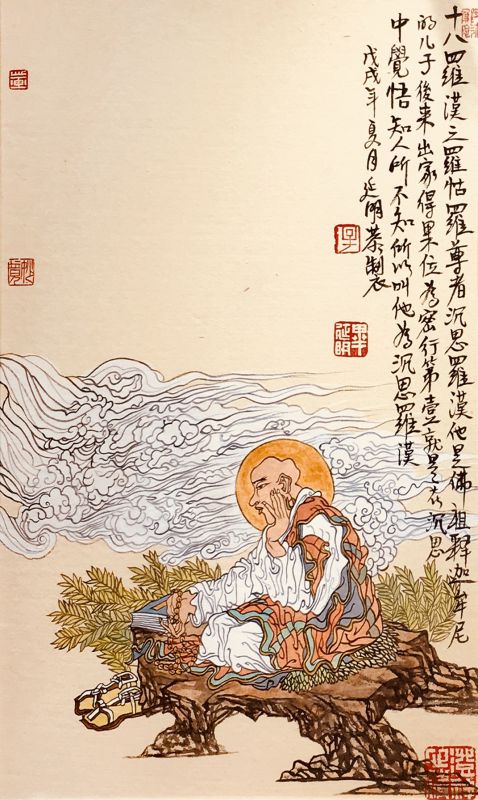 十八四羅漢之羅怙羅尊者沉思羅漢他是佛祖釋迦牟尼
的儿子後来出家得果位為密行第壹就是在沉思
中覺悟知人所不知所以叫他為沉思羅漢
戊戌年夏月延明恭製